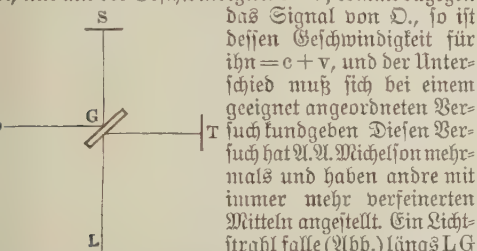 S
G
T
L
das Signal von O., so ist
dessen Geschwindigkeit für
ihn = c + v, und der Unter-
schied muß sich bei einem
geeignet angeordneten Ver-
such kundgeben Diesen Ver-
such hat A. A. Michelson mehr-
mals und haben andre mit
immer mehr verfeinerten
Mitteln angestellt. Ein Licht-
strahl falle (Abb.) längs L G